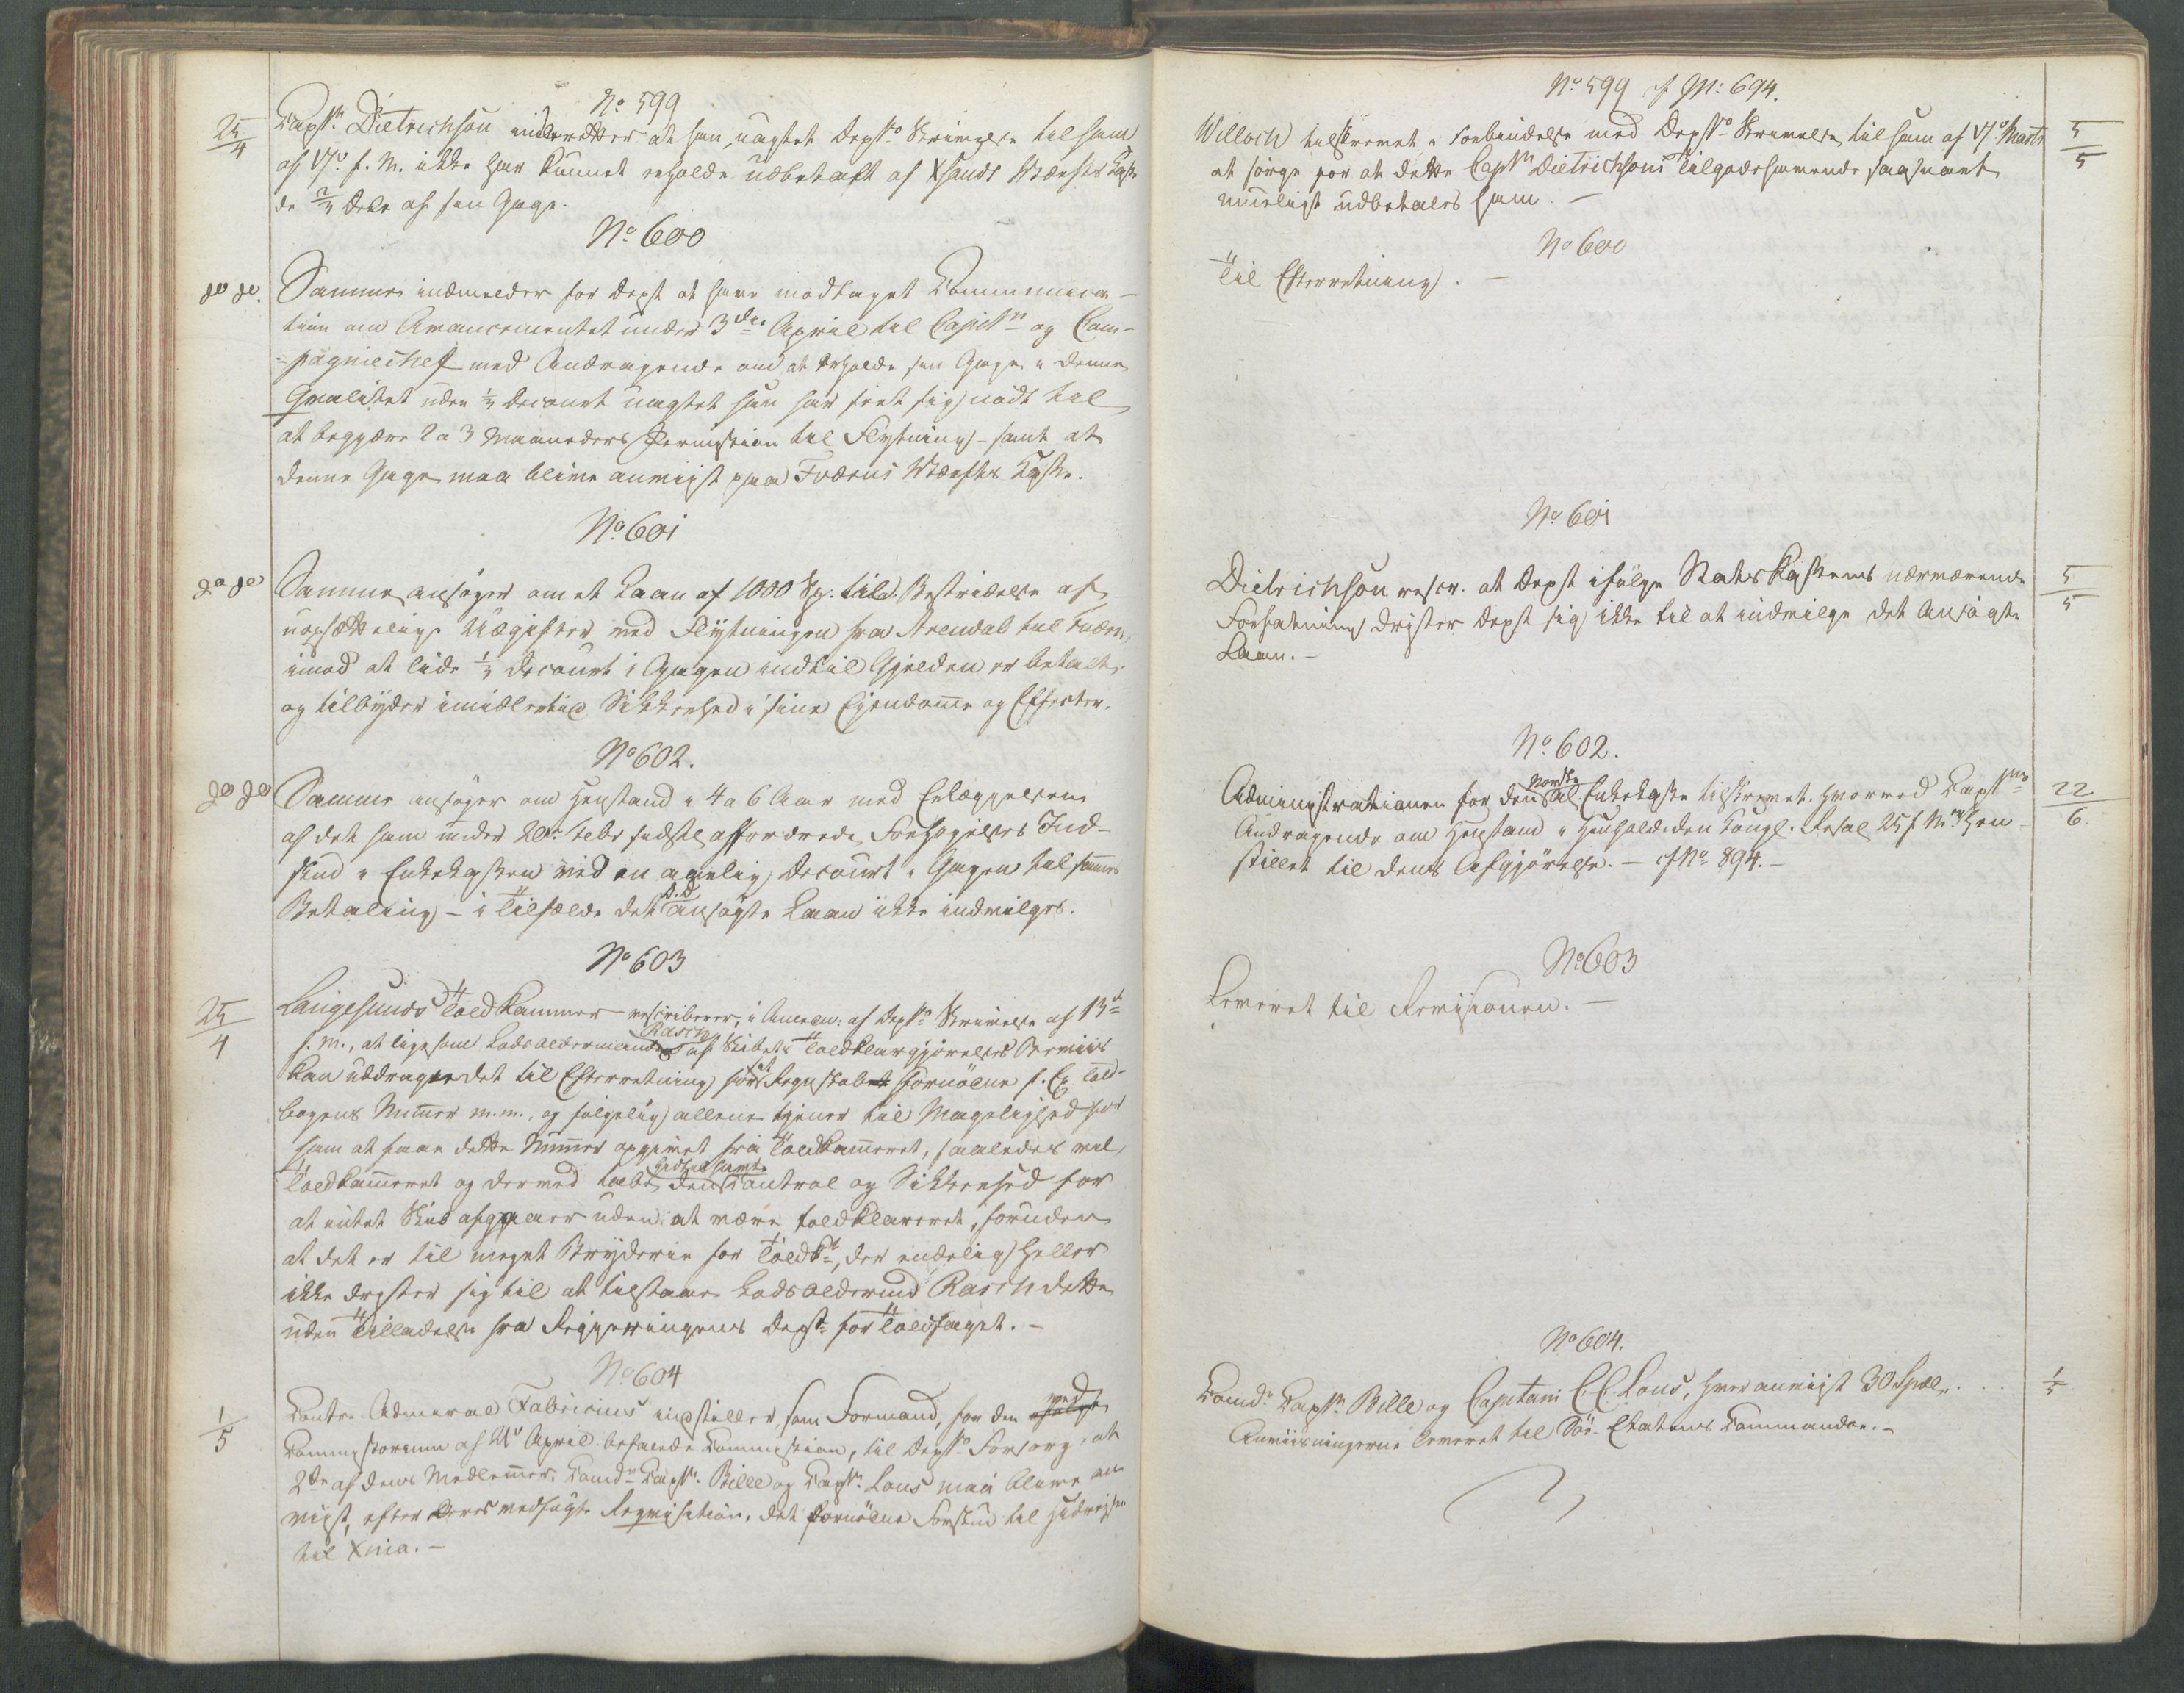 No 599
25/4
Captn. Dietrichson underretter at han uagtet Depts. Skrivelse til ham
af 17de f. M. ikke har kunnet erholde udbetalt af Xsands Værfts Casse
de 2/3 Dele af sin Gage.
No 600
do do.
Samme indmelder for Dept at have modtaget Communica-
tion om Avancementet under 3die April til Capitn og Com-
=pagniechef med Andragende om at erholde sin Gage i denne
Qvalitet uden 1/3 Decourt uagtet han har seet sig nødt til
at begjære 2 a 3 Maaneders Permission til Flytning - samt at
denne Gage maa blive anviist paa Fredriks Værfts Casse.
No 601
do do
Samme ansøger om et Laan af 1000 Sp. til Bestridelse af
uopsættelige Udgifter ved Flytningen fra Arendal til
imod at lide 1/3 Decourt i Gagen indtil Gjelden er betalt,
og tilbyder imidlertid Sikkerhed i sine Eiendomme og Effecter.
No 602.
do do
Samme ansøger om Henstand i 4 a 6 Aar med Erlæggelsen
af det ham under 20de Febr sidstl. affordrede Forhøgelses Ind-
skud i Enkekassen ved en aarlig Decourt i Gagen til samme
Betaling - i Tilfælde det ansøgte Laan ikke indvilges.
No 603
25/4
Langesunds Toldkammer rescriberer, i Anledn: af Depts Skrivelse af 13de
f. M., at ligesom Lodsoldermand Rasch af Skibets Toldklargjørelses Beviis
kan uddrage det til Efterretning for Regnskabet fornødne f. Ex Told-
bogens Numer m.m., og følgelig allene tjener til Magelighed for
ham at faae dette Numer opgivet fra Toldkameret, saaledes vil
Toldkameret og derved tabe den hidtil havte Control og Sikkerhed for
at intet Skib afgaaer uden at være toldklareret, foruden
at det er til meget Bryderie for Toldkt, der endelig heller
ikke drister sig til at tilstaae Lodsoldermd Rasch dette
uden Tilladelse fra Regjeringens Dept for Toldfaget. -
No 604
1/5
Contre Admiral Fabricius indstiller som Formand, for den ved
Commissorium af 21de April befalede Commission, til Depts Forsorg, at
2de af dens Medlemmer, Comdr Captn. Bille og Captn. Lous maa blive an-
viist, efter deres medfulgte Reqvisition, det fornødne Forskud til Hidreisen
til Xnia. -
No 599 cf No: 694.
Willoch tilskrevet i Forbindelse med Depts Skrivelse til ham af 17de Marts
at sørge for at dette Captn Dietrichsons Tilgodehavende saasnart
mueligt udbetales ham. -
5/5
No 600
Til Efterretning. -
No 601
Dietrichson rescr. at Dept ifølge Stats Kassens nærværende
Forfatning drister Dept sig ikke til at indvilge det ansøgte
Laan. -
5/5
No 602.
Administrationen for den Norske al. Enkekasse tilskrevet, hvorved Captns
Andragende om Henstand i Henhold den Kongl. Resol 25 f. M. er hen-
stillet til dens Afgjørelse. - cf No 894. -
22/6.
No 603
Leveret til Revisionen. -
No 604.
Comdr Captn Bille og Capitain C. C. Lous, hver anviist 30 Spdlr. ...
Anviisningerne leveret til Søe-Etatens Commando. -
1/5